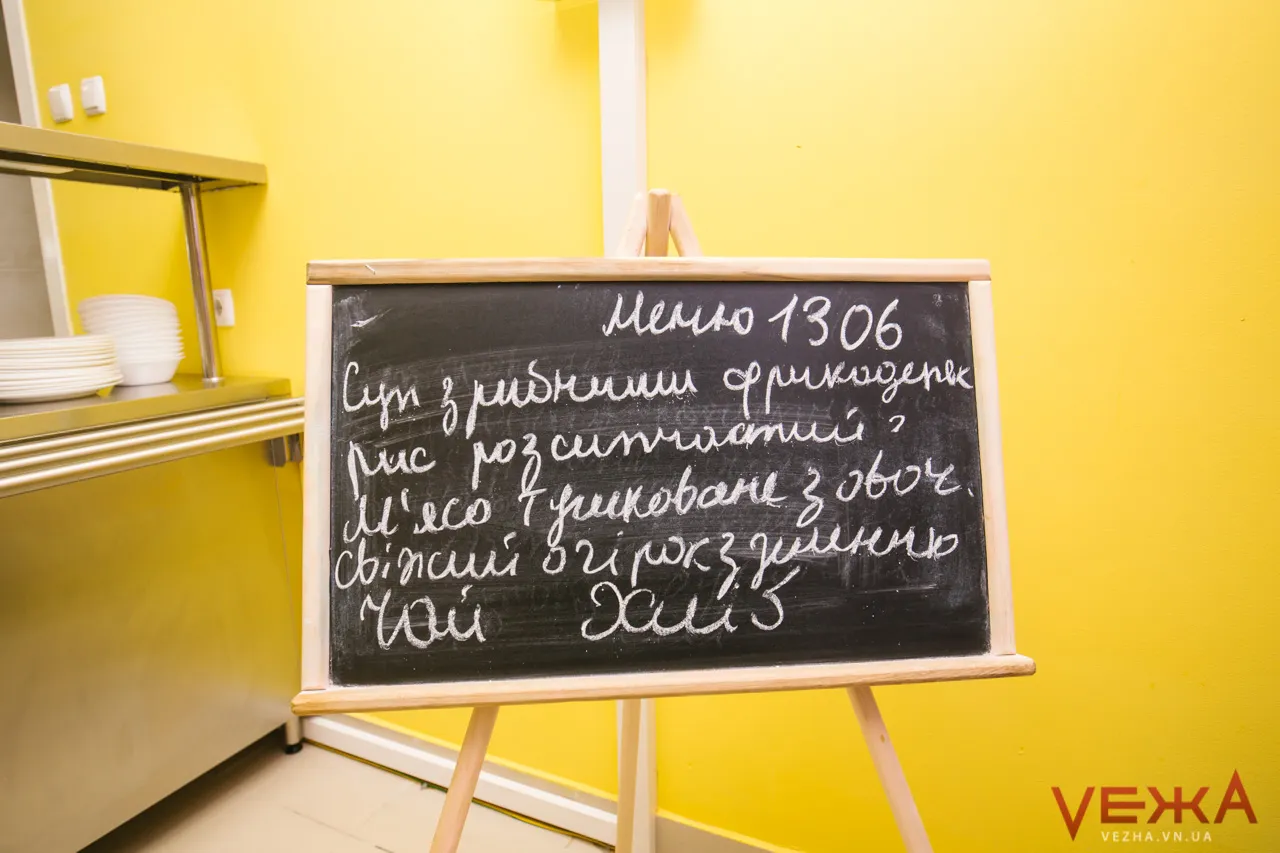 Меню 1306
Суп з рибними фрикадельк
рис розсипчастий
м'ясо тушковане з овоч.
свіжий огірок з зеленню
Чай Хліб
VEЖА
VEZHA.VN.UA